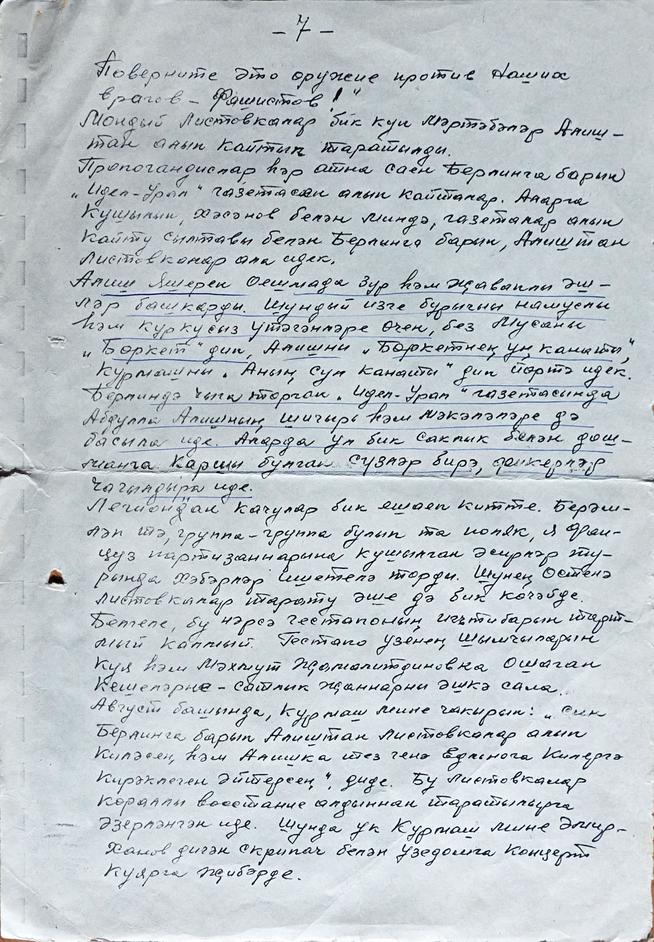 – 7 –
Поверните это оружие против наших
врагов – Фашистов!"
Мондый листовкалар бик күп мәртәбәләр Алиш-
тан алып кайтып таратылды.
Пропогандислар һәр атна саен Берлинга барып
„Идел-Урал" газетасын алып кайталар. Аларга
Кушылып, Хәсәнов белән миндә, газеталар алып
кайту сылтавы белән Берлинга барып, Алиштан
листовкалар ала идек.
Алиш яшерен оешмада зур һәм җаваплы эш-
ләр башкарды. Шундый изге бурычны намуслы
һәм куркусыз үтәгәнләре өчен, без Мусаны
„Бөркет" дип, Алишны „Бөркетнең уң канаты",
Курмашны „Аның сул канаты" дип йөртә идек.
Берлиндә чыга торган „Идел-Урал" газетасында
Абдулла Алишның шигырь һәм мәкаләләре дә
басыла иде. Аларда ул бик саклык белән дош-
манга каршы булган сүзләр бирә, фикерләр
чагылдыра иде.
Легиондан качулар бик ешаеп китте. Берәм-
ләп тә, группа-группа булып та поляк, я фран-
цуз партизаннарына кушылган әсирләр ту-
рында хәбәрләр ишетелә торды. Шуның өстенә
листовкалар тарату эше дә бик көчәйде.
Билгеле, бу нәрсә гестапоның игътибарын тарт-
мый калмый. Гестапо үзенең шымчыларын
куя һәм Мәхмүт Җамалитдиновка ошаган
кешеләрне – сатлык җаннарны эшкә сала.
Август башында, Курмаш мине чакырып: „Син
Берлинга барып Алиштан листовкалар алып
киләсең һәм Алишка тез генә Едльнога килергә
кирәклеген әйтерсең", диде. Бу листовкалар
кораллы восстание алдыннан таратылырга
әзерләнгән иде. Шунда ук Курмаш мине Әмир-
ханов дигән скрипач белән Узедомга концерт
куярга җибәрде.